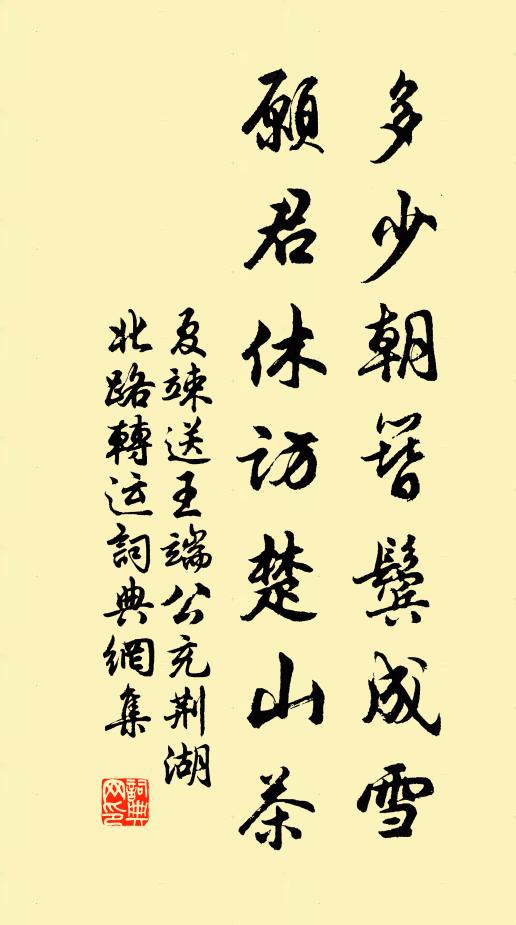 多少朝簪鬓成雪
願君休访楚山茶
夏竦送王端公充荆湖
北路轉运詞典網集
詞典
网印